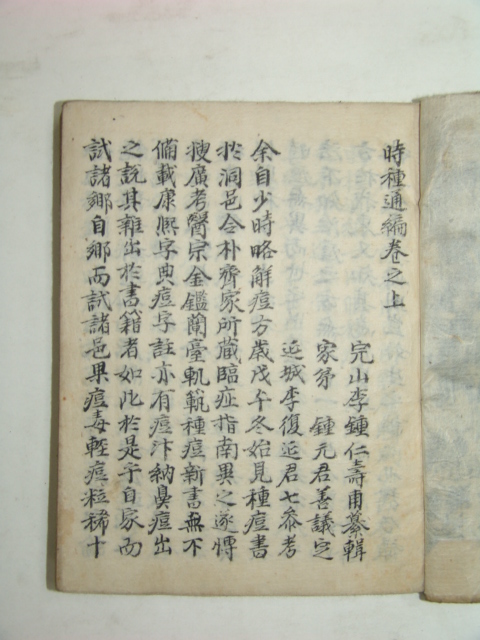 時種通編卷之上
完山李鍾仁壽甫纂輯
家弟鍾元君善議定
延城李復延君七參考
余自少時略解痘方歲戊午冬始見種痘書
於洞邑令朴齊家所藏臨症指南異之遂博
搜廣考醫宗金鑑蘭臺軌範種痘新書無不
備載康熙字典痘字註亦有痘汁納鼻痘出
之說其雜出於書籍者如此於是乎自家而
試諸鄉自鄉而試諸邑果痘毒輕痘粒稀十